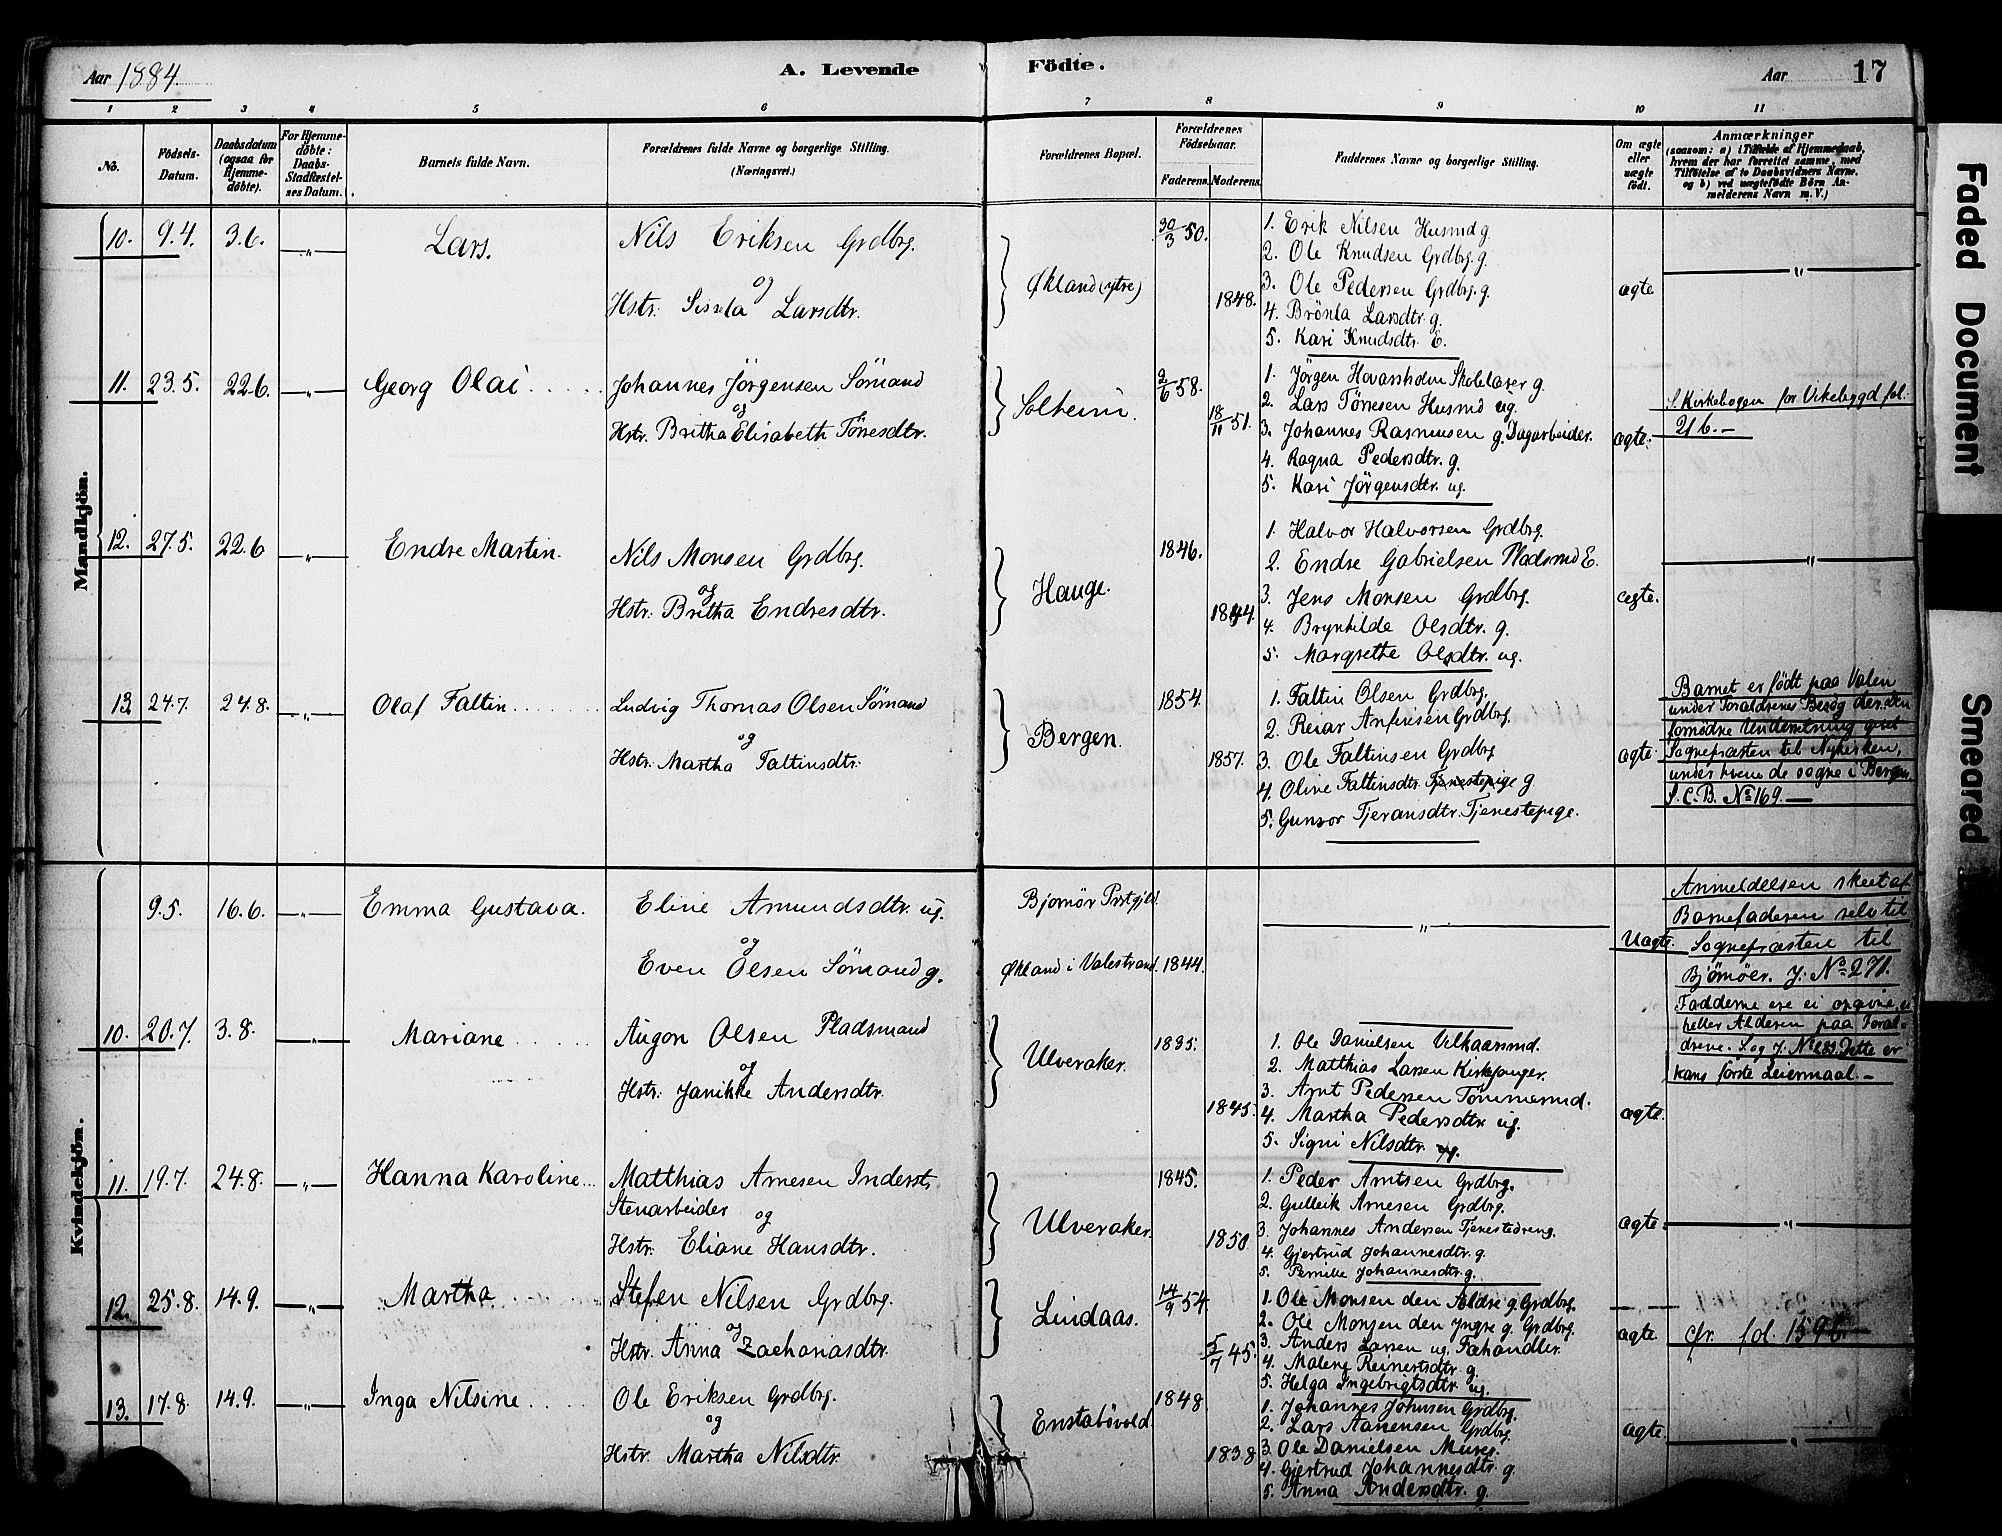 Aar 1884.
A. Levende Födte.
Aar 17
1 2 3 4 5 6 7 8 9 10 11
No.
Födsels-Datum.
Daabsdatum (ogsaa for Hjemme-döbte).
For Hjemme-döbte: Daabs-Stadfæstel-ses Datum.
Barnets fulde Navn.
Forældrenes fulde Navne og borgerlige Stilling.
(Næringsvei.)
Forældrenes Bopæl.
Forældrenes Födselsaar.
Faderens. Moderens.
Faddernes Navne og borgerlige Stilling.
Om ægte eller uægte födt.
Anmærkninger
(saasom: a) i Tilfælde af Hjemmedaab,
hvem der har forrettet samme, med
Tilföielse af to Daabsvidners Navne,
og b) ved uægtefödte Börn An-
melderens Navn m. V.)
Mandkjön.
10. 9.4. 3.6. —„— Lars.
Nils Eriksen Grdbrg.
og
Hstr. Larsdtr.
Økland (ytre)
30/3 50.
1848.
1. Erik Nilsen Husmd g.
2. Ole Knudsen Grdbrg. g.
3. Ole Pedersen Grdbrg. g.
4. Brönla Larsdtr. g.
5. Kari Knudsdtr. E.
ægte
„
11. 23.5. 22.6. —„— Georg Olai
Johannes Jörgensen Sömand
og
Hstr. Britha Elisabeth Tönesdtr.
Solheim.
2/6 58.
18/11 51.
1. Jörgen Hovarsholm Skolelærer g.
2. Lars Tönesen Husmd ug.
3. Johannes Rasmussen g. Dagarbeider.
4. Ragna Pedersdtr. g.
5. Kari Jörgensdtr. ug.
ægte.
S. Kirkebogen for Vikebygd fol.
216.—
12. 27.5. 22.6 —„— Endre Martin.
Nils Monsen Grdbrg.
og
Hstr. Britha Endresdtr.
Hauge.
1846.
1844.
1. Halvor Halvorsen Grdbrg.
2. Endre Gabrielsen Pladsmd E.
3. Jens Monsen Grdbrg.
4. Brynhilde Olsdtr. g.
5. Margrethe Olsdtr. ug.
ægte.
„
13 24.7. 24.8. —„— Olaf Faltin
Ludvig Thomas Olsen Sömand
og
Hstr. Martha Faltinsdtr.
Bergen.
1854.
1857.
1. Faltin Olsen Grdbrg.
2. Reiar Anfinsen Grdbrg.
3. Ole Faltinsen Grdbrg
4. Oline Faltinsdtr. Tjenestepige g
5. Gunvor Tjeransdtr. Tjenestepige.
ægte
Barnet er födt paa Valen
under Forældrenes Besög der. Den
fornödne Underretning givet
Sognepræsten til Nykirken,
under hvem de sogne i Bergen.
S. C.B. No 169.—
Kvindekjön.
9.5. 16.6. —„— Emma Gustava.
Eline Amundsdtr. ug.
og
Even Olsen Sömand g.
Bjornör Prstgjld.
Økland i Valestrand. 1844.
„
Uægte.
Anmeldelsen skeet af
Barnefaderen selv til
Sognepræsten til
Bjömöer. J. No 271.
Fadderne ere ei opgivne, ei
heller Alderen paa Foræl-
drene. S. og J. No Dette er
hans förste Leiermaal.—
10. 20.7. 3.8. —„— Mariane
Augon Olsen Pladsmand
og
Hstr. Janikke Andersdtr.
Ulveraker.
1835.
1845.
1. Ole Danielsen Vilkaarsmd.
2. Matthias Larsen Kirkesanger.
3. Arnt Pedersen Tömmermd.
4. Martha Pedersdtr. ug.
5. Signi Nilsdtr. g.
ægte.
11. 19.7. 24.8. —„— Hanna Karoline
Matthias Arnesen Inderst,
Stenarbeider
og
Hstr. Eliane Hansdtr.
Ulveraker.
1845.
1850
1. Peder Arntsen Grdbrg.
2. Gulleik Arnesen Grdbrg.
3. Johannes Andersen Tjenestedreng.
4. Gjertrud Johannesdtr. g.
5. Pernille Johannesdtr. g.
ægte.
„
12. 25.8. 14.9. —„— Martha
Stefen Nilsen Grdbrg.
og
Hstr. Anna Zachariasdtr.
Lindaas.
14/9 54
5/7 45.
1. Ole Monsen den Ældre g. Grdbrg.
2. Ole Monsen den Yngre g. Grdbrg.
3. Anders Larsen ug. Fæhandler.
4. Malene Reinertsdtr. g.
5. Helga Ingebrigtsdtr. ug.
ægte.
cfr. fol.
13. 17.8. 14.9. —„— Inga Nilsine
Ole Eriksen Grdbrg.
og
Hstr. Martha Nilsdtr.
Enstabövold
1848
1838
1. Johannes Johnsen Grdbrg.
2. Lars Aanensen Grdbrg.
3. Ole Danielsen Murer.
4. Gjertrud Johannesdtr. g.
5. Anna Andersdtr. g.
ægte.
Faded Document
Smeared